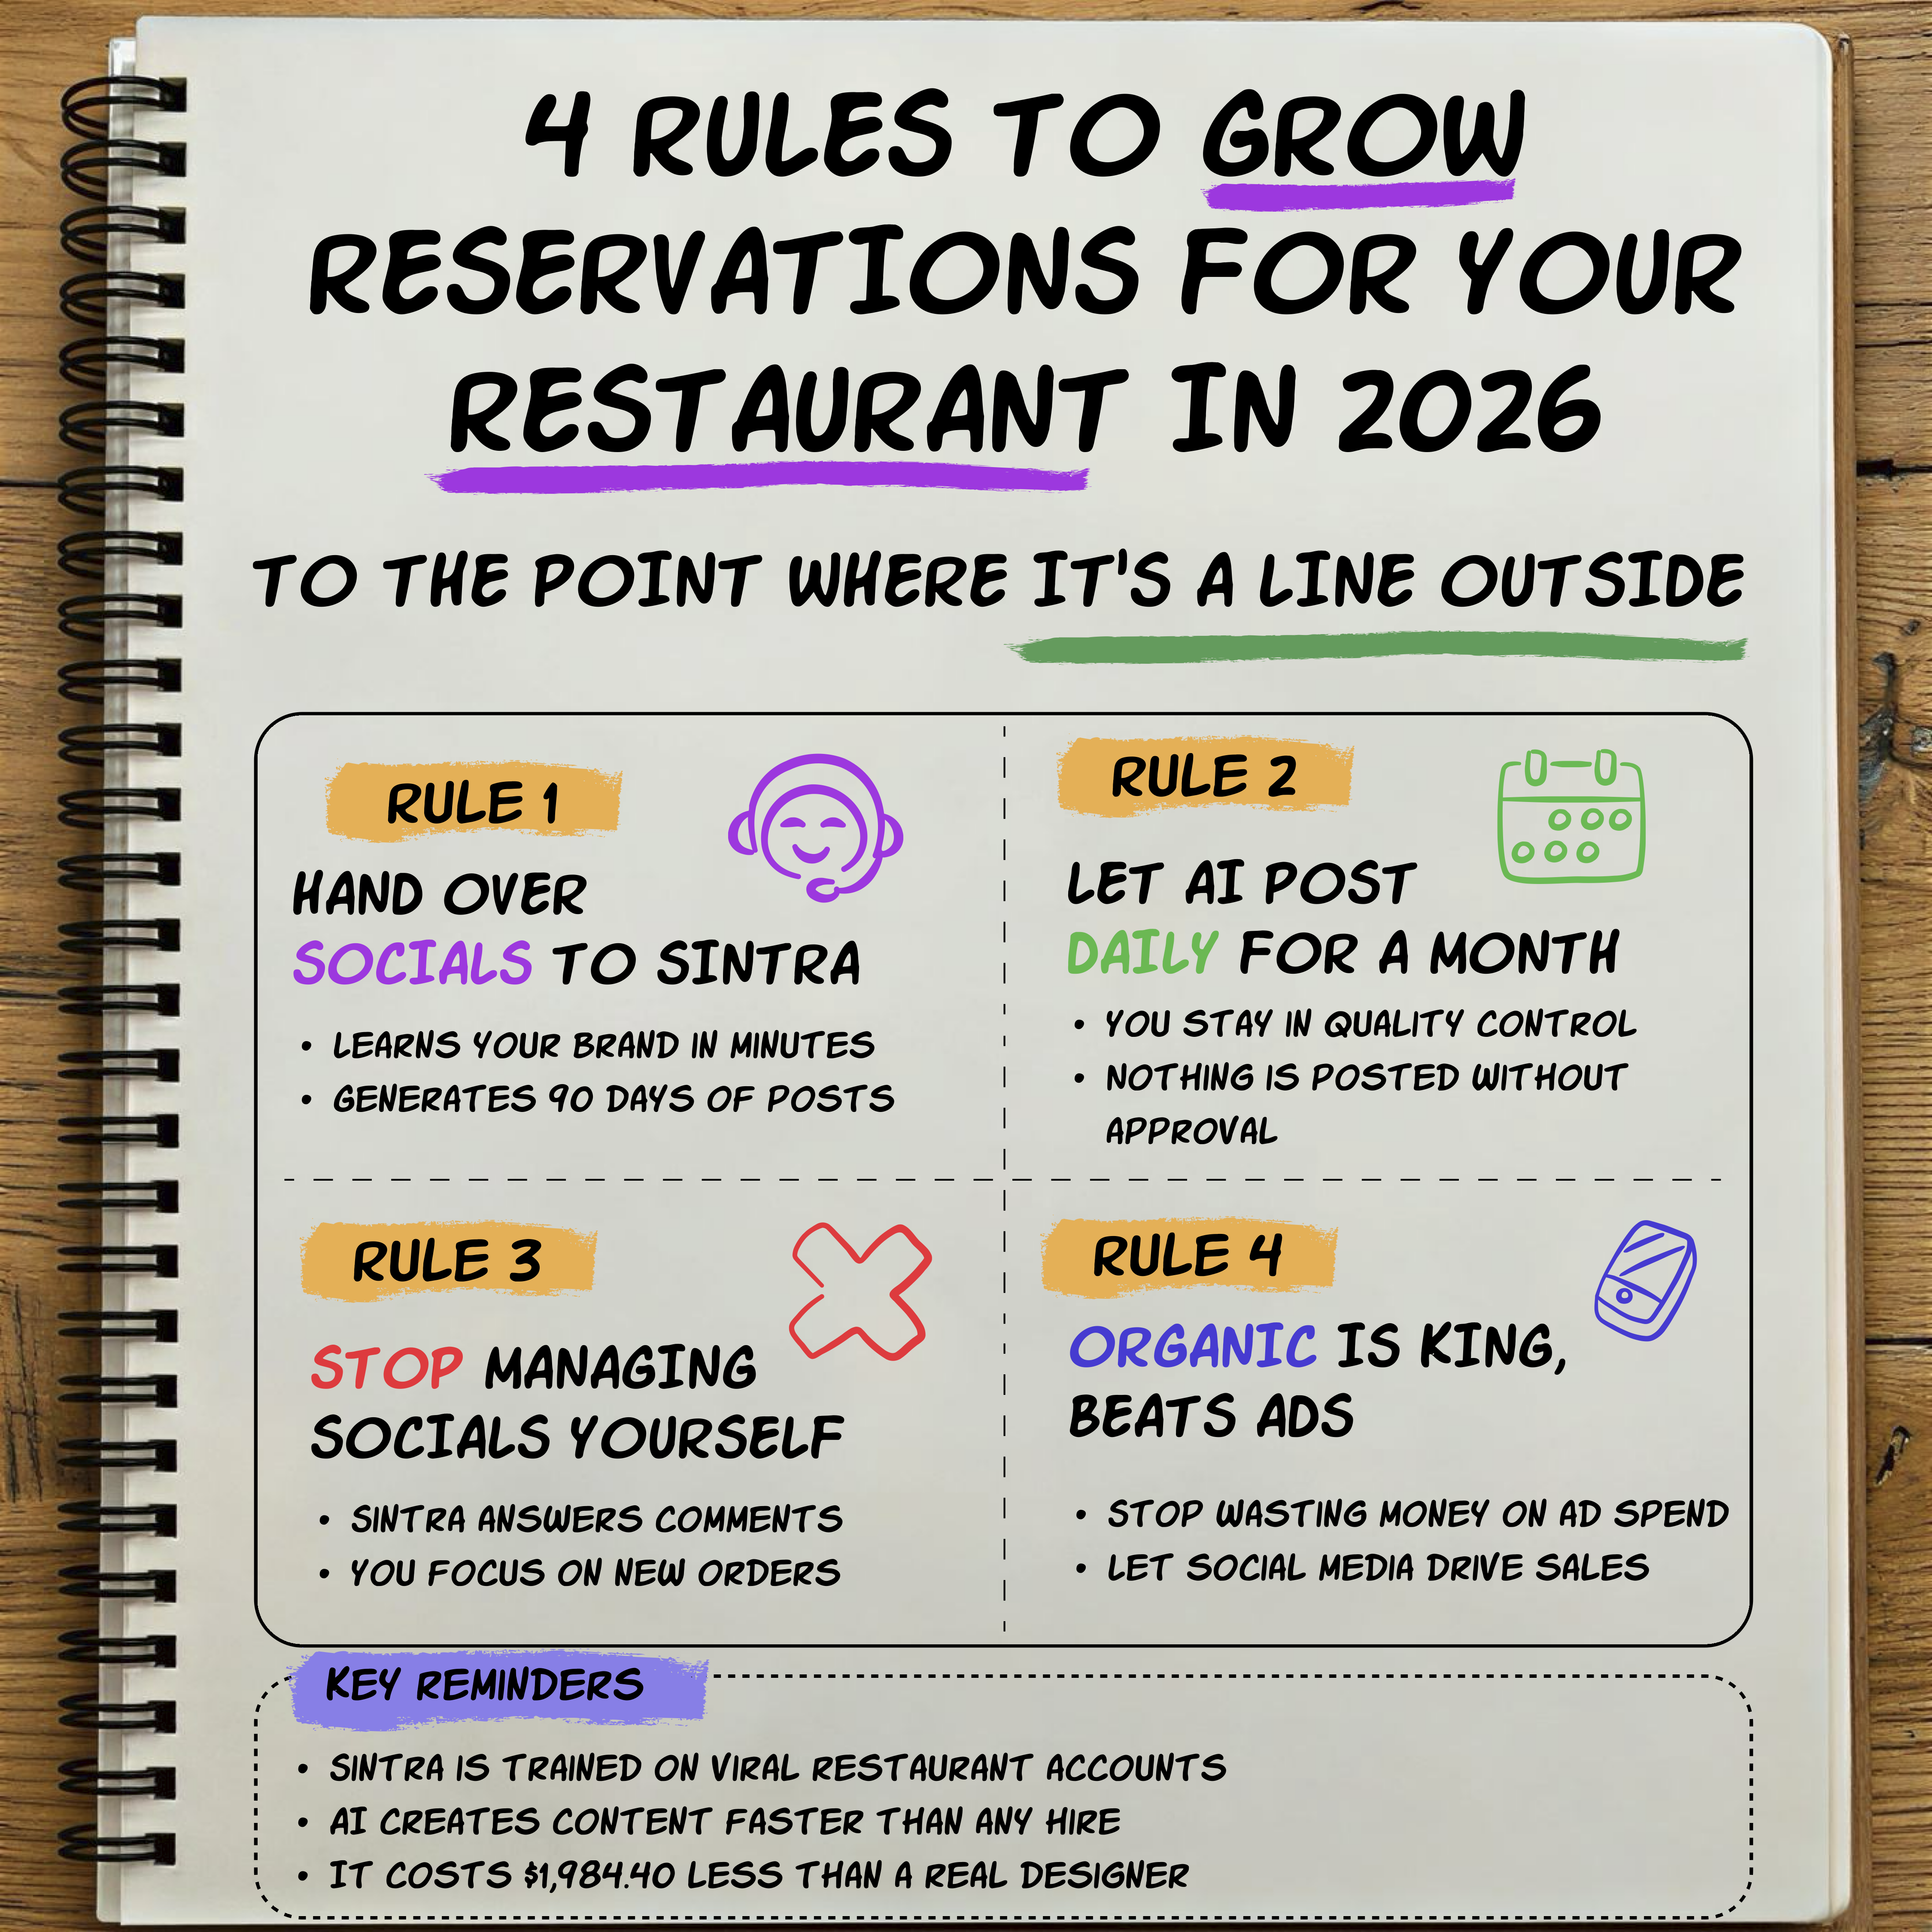 4 RULES TO GROW
RESERVATIONS FOR YOUR
RESTAURANT IN 2026
TO THE POINT WHERE IT'S A LINE OUTSIDE
RULE 1
HAND OVER
SOCIALS TO SINTRA
• LEARNS YOUR BRAND IN MINUTES
• GENERATES 90 DAYS OF POSTS
RULE 2
LET AI POST
DAILY FOR A MONTH
• YOU STAY IN QUALITY CONTROL
• NOTHING IS POSTED WITHOUT
APPROVAL
RULE 3
STOP MANAGING
SOCIALS YOURSELF
• SINTRA ANSWERS COMMENTS
• YOU FOCUS ON NEW ORDERS
RULE 4
ORGANIC IS KING,
BEATS ADS
• STOP WASTING MONEY ON AD SPEND
• LET SOCIAL MEDIA DRIVE SALES
KEY REMINDERS
• SINTRA IS TRAINED ON VIRAL RESTAURANT ACCOUNTS
• AI CREATES CONTENT FASTER THAN ANY HIRE
• IT COSTS $1,984.40 LESS THAN A REAL DESIGNER